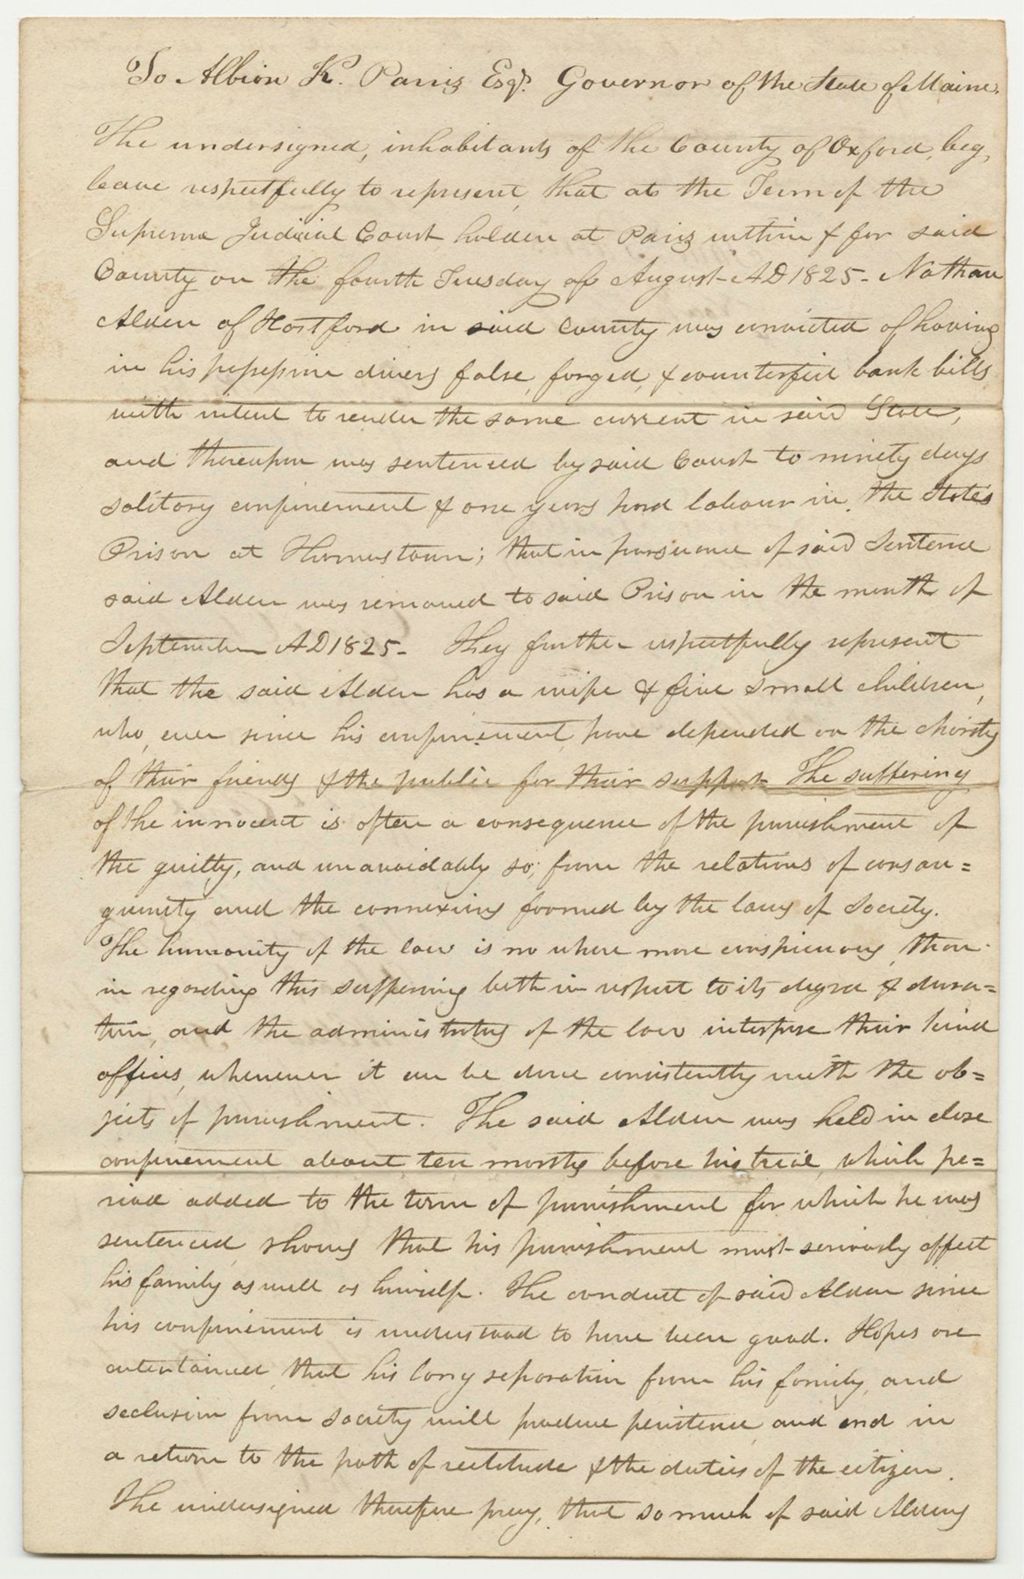 To Albion K. Parris Esqr. Governor of the State of Maine.
The undersigned, inhabitants of the County of Oxford, beg,
leave respectfully to represent, that at the Term of the
Supreme Judicial Court holden at Paris within & for said
County on the fourth Tuesday of August AD 1825 - Nathan
Alden of Hartford in said County was convicted of having
in his possession divers false, forged, & counterfeit bank bills
with intent to render the same current in said State,
and thereupon was sentenced by said Court to ninety days
solitary confinement & one years hard labour in the State's
Prison at Thomastown; that in pursuance of said Sentence
said Alden was removed to said Prison in the month of
September AD 1825 - They further respectfully represent
that the said Alden has a wife & five small children,
who, ever since his confinement, have depended on the charity
of their friends & the public for their support. The suffering
of the innocent is often a consequence of the punishment of
the guilty, and unavoidably so, from the relations of consan=
guinity and the connexions formed by the laws of Society.
The humanity of the law is no where more conspicuous, than
in regarding this suffering both in respect to its degree & dura=
tion, and the administrators of the law interpose their kind
offices, whenever it can be done consistently with the ob=
jects of punishment. The said Alden was held in close
confinement about ten months before his trial, which pe=
riod added to the term of punishment for which he was
sentenced, shows that his punishment must seriously affect
his family as well as himself. The conduct of said Alden since
his confinement is understood to have been good. Hopes are
entertained, that his long separation from his family, and
seclusion from society will produce penitence, and end in
a return to the path of rectitude & the duties of the citizen.
The undersigned therefore pray, that so much of said Aldens